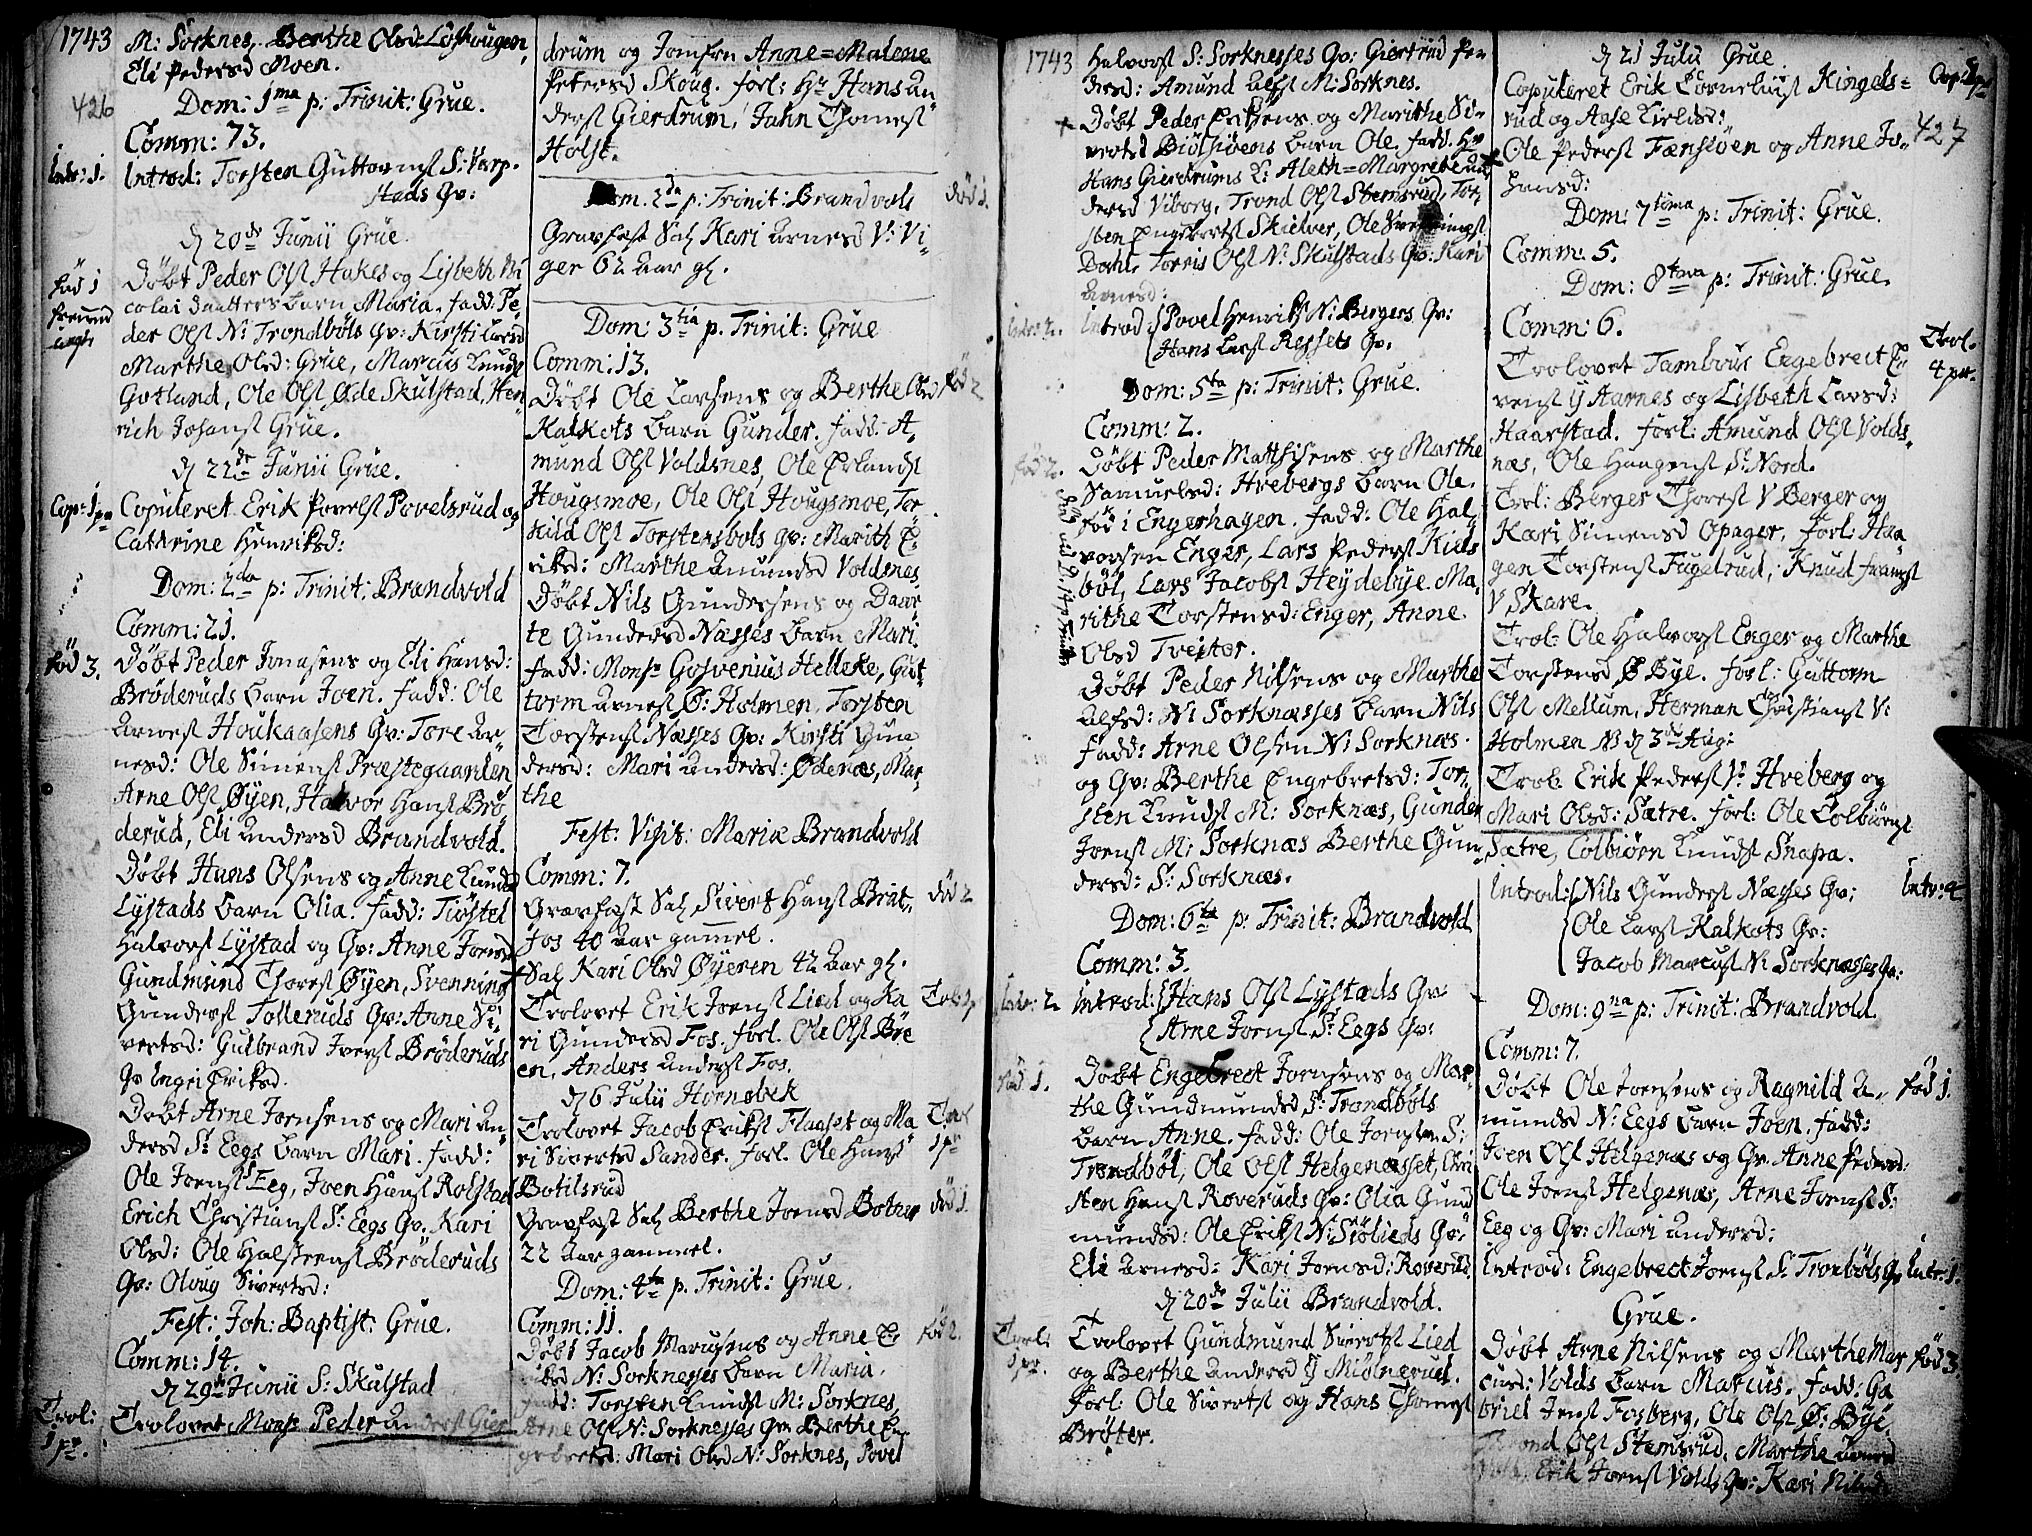 1743
426
M: Sorknes, Berthe Olsd: Losshougen,
Eli Pedersd Moen.
Dom: 1ma p: Trinit: Grue.
Comm: 73.
Intr: 1.
Introd: Torsten Guttormsl S: Varp-
Hads Qv:
d 20de Junii Grue.
fød 1
Døbt Peder Olsl Hukes og Lisbeth Ni
colai Daatters barn Maria. fadd: Pe
der Olsl N: Trondbøls Qv: Kirsti Larsd
Marthe Olsd: Grue, Marcus Knudsl
Gotland, Ole Olsl Øde Skulstad, Hen
rich Johansl Grue.
d 22de Junii Grue.
Cop: 1 pr
Copuleret Erik Povelsl Povelsrud og
Cathrine Henriksd:
Dom: 2da p: Trinit: Brandvold
Comm: 21.
fød 3.
Døbt Peder Jonasens og Eli Hansd:
Brøderuds barn Joen. fadd: Ole
Arnesl Houkaasens Qv: Tore Ar-
nesd: Ole Simensl Præstegaarden
Arne Olsl Øyen, Halvor Hansl Brø
derud, Eli Andersd Brandvold.
Døbt Hans Olsens og Anne Knudsd
Lystads barn Olia. fadd: Tiøstel
Halvorsl Lystad og Qv: Anne Joensd
Gundmund Thoresl Øyen, Svenning
Gundersl Tolleruds Qv: Anne Si-
vertsd: Gulbrand Iversl Brøderuds
Qv Ingri Eriksd.
Døbt Arne Joensens og Mari An-
dersd S: Eegs barn Mari. fadd:
Ole Joensl Eeg, Joen Hansl Rolstad
Erich Christiansl S: Eegs Qv. Kari
Olsd: Ole Halstensl Brøderuds
Qv: Oloug Sivertsd:
Fest: Joh: Baptist: Grue.
Comm: 14.
d 29de Junii S: Skulstad
Trol:
1 pr.
Trolovet Monsr Peder Andersl Gier
drum og Jomfru Anne=Malene
Petersd Skoug. forl: Hr Hans An-
dersl Gierdrum, Jahn Thomesl
Holst.
Dom. 2da p: Trinit: Brandvols
død 1.
Gravfæst Sal Kari Arnesd V: Vi-
ger 62 Aar gl.
Dom: 3tia p. Trinit: Grue
Comm: 13.
fød 2
Døbt Ole Larsens og Berthe Olsd
Kalkots barn Gunder. fadd: A-
mund Olsl Voldsnes, Ole Erlandsl
Hougsmoe, Ole Olsl Hougsmoe, Tor
kild Olsl Torstensbols Qv: Marith E-
riksd: Marthe Amundsd Voldsnes
Døbt Nils Gundersens og Daar-
te Gundersd Næsses barn Mari.
fadd: Monsr Gosvenius Helleke, Gut
torm Arnesl Ø: Holmen, Torsten
Torstensl Næsses Qv: Kirsti Gun
dersd: Mari Andersd: Ødenæs, Mar-
the
Fest: Visit: Mariæ Brandvold
Comm: 7.
død 2
Gravfæst Sal Sivert Hansl Brat-
fos 40 Aar gammel.
Sal Kari Olsd Øyeren 42 Aar gl.
Trolovet Erik Joensl Lied og Ka
ri Gundersd Fos. forl. Ole Olsl Bre
en, Anders Andersl Fos.
d 6 Julii Hornebek
Trol
1 pr
Trolovet Jacob Eriksl Flaaset og Ma
ri Sivertsd Sander. forl. Ole Hansl
Botilsrud
død 1.
Gravfæst Sal Berthe Joensd Botner
22 Aar gammel.
Dom: 4ta p. Trinit: Grue.
Comm: 11.
fød 2.
Døbt Jacob Marcusens og Anne E-
riksd N: Sorknesses barn Maria.
fadd: Torsten Knudsl M: Sorknes,
Arne Olsl N: Sorknesses Qv Berthe En-
gebretsd: Mari Olsd N: Sorknes, Povel
1743
Halvorsl S: Sorknesses Qv: Giertrud Pe-
dersd: Amund Alfsl M: Sorknes.
Døbt Peder Eriksens og Marithe Si-
vertsd Diølsiøens barn Ole. fadd. Hr
Hans Gierdrums K: Aleth=Margrete An
dersd Viborg, Trond Olsl Stemsrud, Tor
sten Engebretsl Skielver, Ole Svenningsl
Dahl, Torris Olsl N: Skulstads Qv: Kari
Arnesd:
Intr: 2.
Introd Povel Henriksl N: Bergers Qv:
Hans Larsl Ressets Qv.
Dom: 5ta p: Trinit: Grue.
Comm: 2.
fød 2.
Døbt Peder Matthisens og Marthe
Samuelsd: Hvebergs barn Ole.
fød i Engerhagen. fadd: Ole Hal
vorsen Enger, Lars Pedersl Kiels
bøl, Lars Jacobsl Heydebye. Ma-
rithe Torstensd: Enger, Anne
Olsd Tveiter.
Døbt Peder Nilsens og Marthe
Alfsd: N: Sorknæsses barn Nils
fadd: Arne Olsen N: Sorknæs.
og Qv: Berthe Engebretsd: Tor-
sten Knudsl M: Sorknæs, Gunder
Joensl M: Sorknæs Berthe Gun-
dersd: S: Sorknæs.
Dom: 6ta p: Trinit: Brandvold
Comm: 3.
Intr: 2
Introd: Hans Olsl Lystads Qv:
Arne Joensl S: Eegs Qv:
fød 1.
Døbt Engebrect Joensens og Mar-
the Gundmundsd S: Trondbøls
barn Anne. fadd: Ole Joensen S:
Trondbøl, Ole Olsl Helgenæsset, Chri
sten Hansl Roveruds Qv: Olia Gund
mundsd: Ole Eriksl N: Siølieds Qv:
Eli Arnesd: Kari Joensd: Roverud.
d 20de Julii Brandvold.
Trol:
1 pr.
Trolovet Gundmund Sivertsl Lied
og Berthe Andersd I Miølnerud.
forl: Ole Sivertsl og Hans Thomesl
Brøter.
d 21 Julii Grue.
Cop: 2 pr
427
Copuleret Erik Cornelius Ringels=
rud og Aase Kieldsd:
Ole Pedersl Fænsiøen og Anne Jo-
hansd:
Dom: 7tima p: Trinit: Grue.
Comm: 5.
Dom: 8tava p: Trinit: Grue.
Comm: 6.
Trol.
4 pr.
Trolovet Tambour Engebrect E-
rensl I Aarnes og Lisbeth Larsd:
Haarstad. forl: Amund Olsl Volds-
næs, Ole Haagensl S: Nord.
Trol: Berger Thoresl V Berger og
Kari Simensd Opager. forl: Haa
gen Torstensl Fugelrud, Knud Fransl
V Skare.
Trol: Ole Halvorsl Enger og Marthe
Torstensd Ø Bye. forl: Guttorm
Olsl Mellum, Herman Christiansl V:
Holmen NB d 3de Aug:
Trol: Erik Pedersl V: Hveberg og
Mari Olsd: Sætre. forl: Ole Colbiørnsl
Sætre, Colbiørn Knudsl Snapa.
Intr: 4
Introd: Nils Gundersl Næsses Qv:
Ole Larsl Kalkots Qv:
Jacob Marcusl N: Sorknæsses Qv:
Dom: 9na p: Trinit: Brandvold.
Comm: 7.
fød 1.
Døbt Ole Joensens og Ragnild A-
mundsd N: Eegs barn Joen. fadd:
Joen Olsl Helgenæs og Qv Anne Pedersd:
Ole Joensl Helgenæs, Arne Joensl S:
Eeg og Qv: Mari Andersd:
Introd: Engebrect Joensl S: Tronbøls Qv Intr: 1.
Grue.
fød 3.
Døbt Arne Nilsens og Marthe Mar
cusd: Volds barn Marcus. fadd: Ga
briel Jensl Fosberg, Ole Olsl Ø: Bye,
Trond Olsl Stemsrud, Marthe Arnesd
Erik Joensl Volds Qv: Kari Nilsd